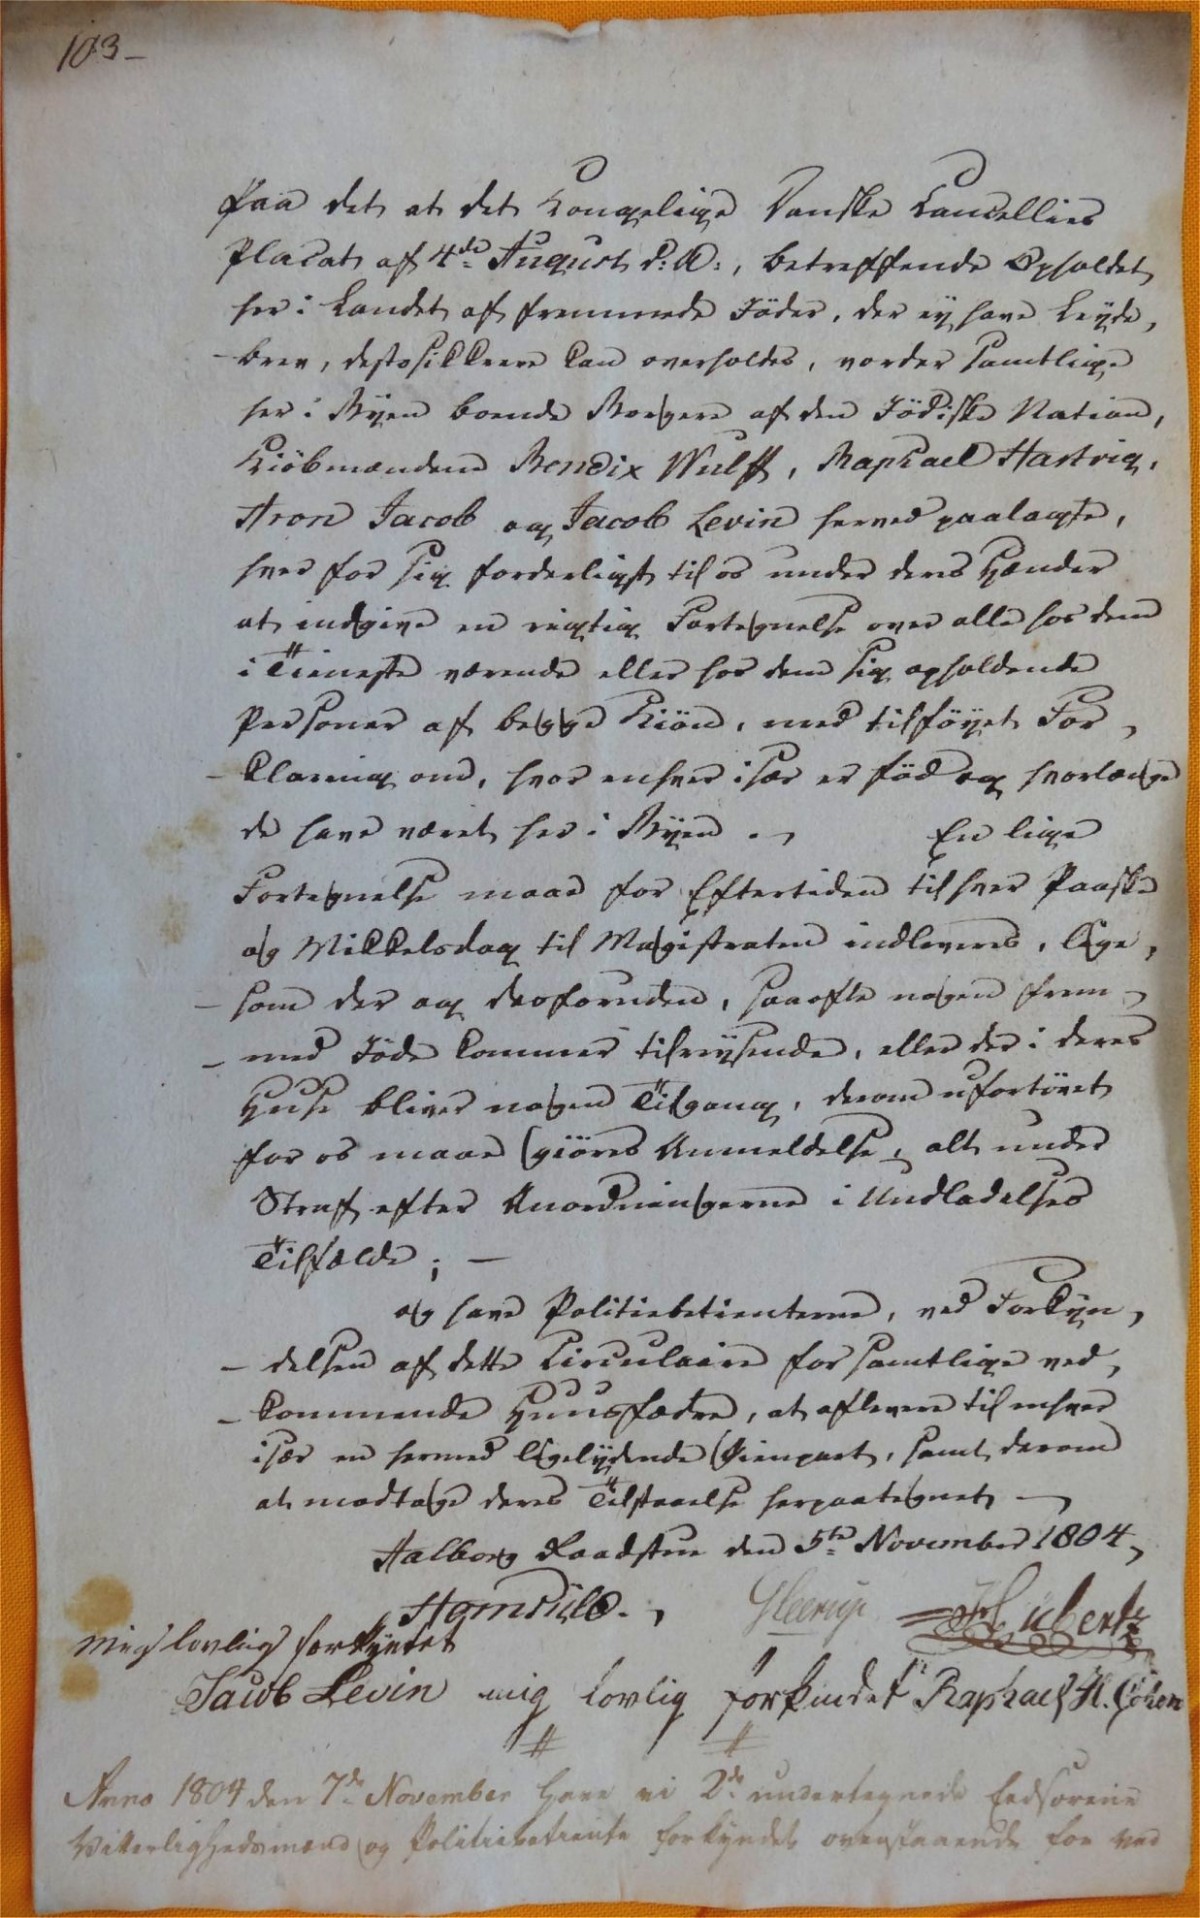 103-
Paa det at det Kongelige Danske Cancellies
Placat af 4de August d: A:, betreffende Opholdet
her i Landet af fremmede Jöder, der ej have Leyde,
-brev, destosikkrere kan overholdes, vorder samtlige
her i Byen boende Borgere af den Jödiske Nation,
Kiöbmændene Bendix Wulff, Raphael Hartvig,
Aron Jacob og Jacob Levin herved paalagte,
hver for sig forderligst til os under deres Hænder
at indgive en rigtig Fortegnelse over alle hos dem
i Tieneste værende eller hos dem sig opholdende
Personer af begge Kiön, med tilföyet For-
-klaring om, hvor enhver især er föd og hvorlænge
de have været her i Byen. - En lige
Fortegnelse maae for Eftertiden til hver Paaske
og Mikkelsdag til Magistraten indleveres, lige,
-som der og desforuden, saaofte nogen frem-
-med Jöde kommer tilreysende, eller der i deres
Huse bliver nogen Tilgang, derom ufortövet
for os maae giöres Anmeldelse, alt under
Straf efter Anordningerne i Undladelses
Tilfælde; -
og have Politiebetienterne, ved Forkyn,
-delsen af dette Circulaire for samtlige ved,
-kommende Huusfædre, at aflevere til enhver
især en hermed ligelydende Gienpart, samt derom
at modtage deres Tilstaaelse herpaategnet -
Aalborg Raadstue den 5te November 1804-
Hornsyld. Gleerup Hübertz
Mig lovlig forkyndet
Jacob Levin mig lovlig forkyndet Raphael H. Cohen
Anno 1804 den 7de November have vi 2de undertegnede Eedsorene
Vitterlighedsmænd og Politiebetiente forkyndet ovenstaaende for ved